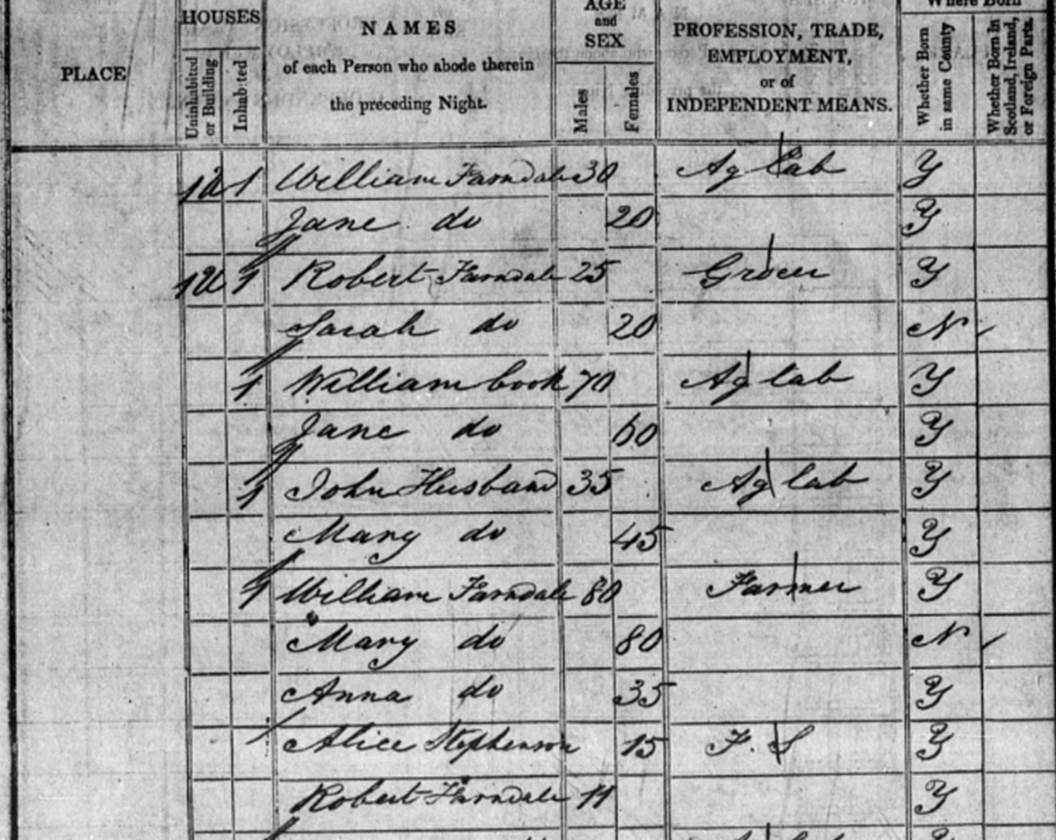 HOUSES
AGE and SEX
Where Born
PLACE
Uninhabited or Building
Inhabited
NAMES
of each Person who abode therein
the preceding Night.
Males
Females
PROFESSION, TRADE,
EMPLOYMENT,
or of
INDEPENDENT MEANS.
Whether Born in same County
Whether Born in Scotland, Ireland, or Foreign Parts.
1 William Farndale 30 Ag Lab Y
Jane do 20 Y
1 Robert Farndale 25 Grocer Y
Sarah do 20 N
1 William Cook 70 Ag Lab Y
Jane do 60 Y
1 John Husband 35 Ag Lab Y
Mary do 45 Y
1 William Farndale 80 Farmer Y
Mary do 80 N
Anna do 35 Y
Alice Stephenson 15 F. S Y
Robert Farndale 11 Y